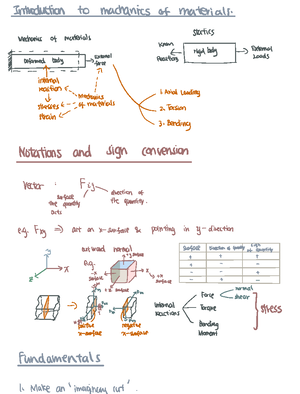 Introduction to mechanics of materials.
Mechanics of materials
statics
deformed body
External force
known Reactions
rigid body
External Loads
internal reaction
stresses
strain
Mechanics of materials
1. Axial Loading
2. Torsion
3. Bending
Notations and sign convension
Vector: Fij
surface the quantity acts
direction of the quantity.
e.g. Fxy ⇒ act on x-surface & pointing in y-direction
outward normal
e.g.
+y surface
+x surface
+z surface
-y surface
y
x
z
surface | Direction of Quantity | sign of Quantity
+ | + | +
+ | - | -
- | - | +
- | + | -
positive x-surface
negative x-surface
Internal reactions
Force
normal
shear
Torque
Bending Moment
stress
Fundamentals
1. Make an 'imaginary cut'.